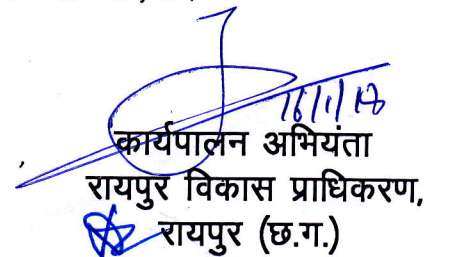 16/1/18
कार्यपालन अभियंता
रायपुर विकास प्राधिकरण,
रायपुर (छ.ग.)